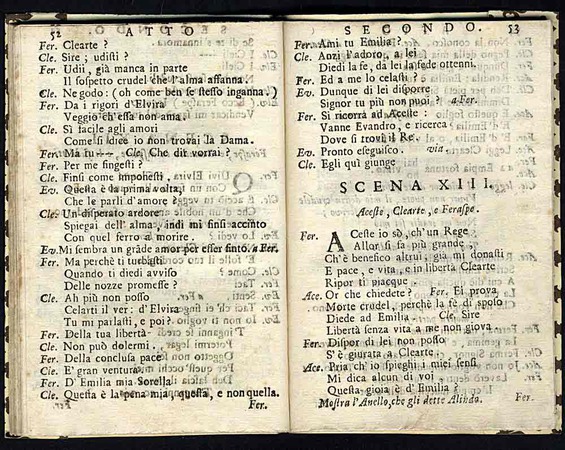 52 ATTO
Fer. Clearte ?
Cle. Sire, udisti ?
Fer. Udii, già manca in parte
Il sospetto crudel che l'alma affanna.
Cle. Ne godo: ( oh come ben se stesso inganna. )
Fer. Da i rigori d'Elvira
Veggio ch'essa non ama.
Cle. Sì facile agli amori
Come si dice io non trovai la Dama.
Fer. Ma tu --- Cle. Che dir vorrai ?
Fer. Per me fingesti ?
Cle. Finsi come imponesti,
Ev. Questa è la prima volta,
Che le parli d'amore ?
Cle. Un disperato ardore
Spiegai dell' alma, indi mi finsi accinto
Con quel ferro a morire.
Ev. Mi sembra un gráde amor per esser finto. a Fer.
Fer. Ma perchè ti turbasti
Quando ti diedi avviso
Delle nozze promesse ?
Cle. Ah più non posso
Celarti il ver: d'Elvira
Tu mi parlasti, e poi ?
Fer. Della tua libertà
Cle. Non può dolermi.
Fer. Della conclusa pace
Cle. E' gran ventura,
Fer. D' Emilia mia Sorella
Cle. Questa è la pena mia, questa, e non quella.
Fer.
SECONDO. 53
Fer. Ami tu Emilia ?
Cle. Anzi l'adoro, a lei
Diedi la fe, da lei la fede ottenni.
Fer. Ed a me lo celasti ?
Ev. Dunque di lei disporre
Signor tu più non puoi ? a Fer.
Fer. Si ricorra ad Aceste :
Vanne Evandro, e ricerca
Dove si trovi il Re.
Ev. Pronto eseguisco. via.
Cle. Egli quì giunge
SCENA XIII.
Aceste, Clearte, e Feraspe.
Fer. ACeste io sò, ch'un Rege
Allor si fa più grande,
Ch'è benefico altrui; già mi donasti
E pace, e vita, e in libertà Clearte
Ripor ti piacque
Ace. Or che chiedete ? Fer. Ei prova
Morte crudel, perchè la fè di sposo
Diede ad Emilia. Cle. Sire
Libertà senza vita a me non giova
Fer. Dispor di lei non posso
S'è giurata a Clearte
Ace. Pria ch'io spieghi i miei sensi
Mi dica alcun di voi
Questa gioia è d' Emilia ?
Mostra l'Anello, che gli dette Alindo.
Fer.